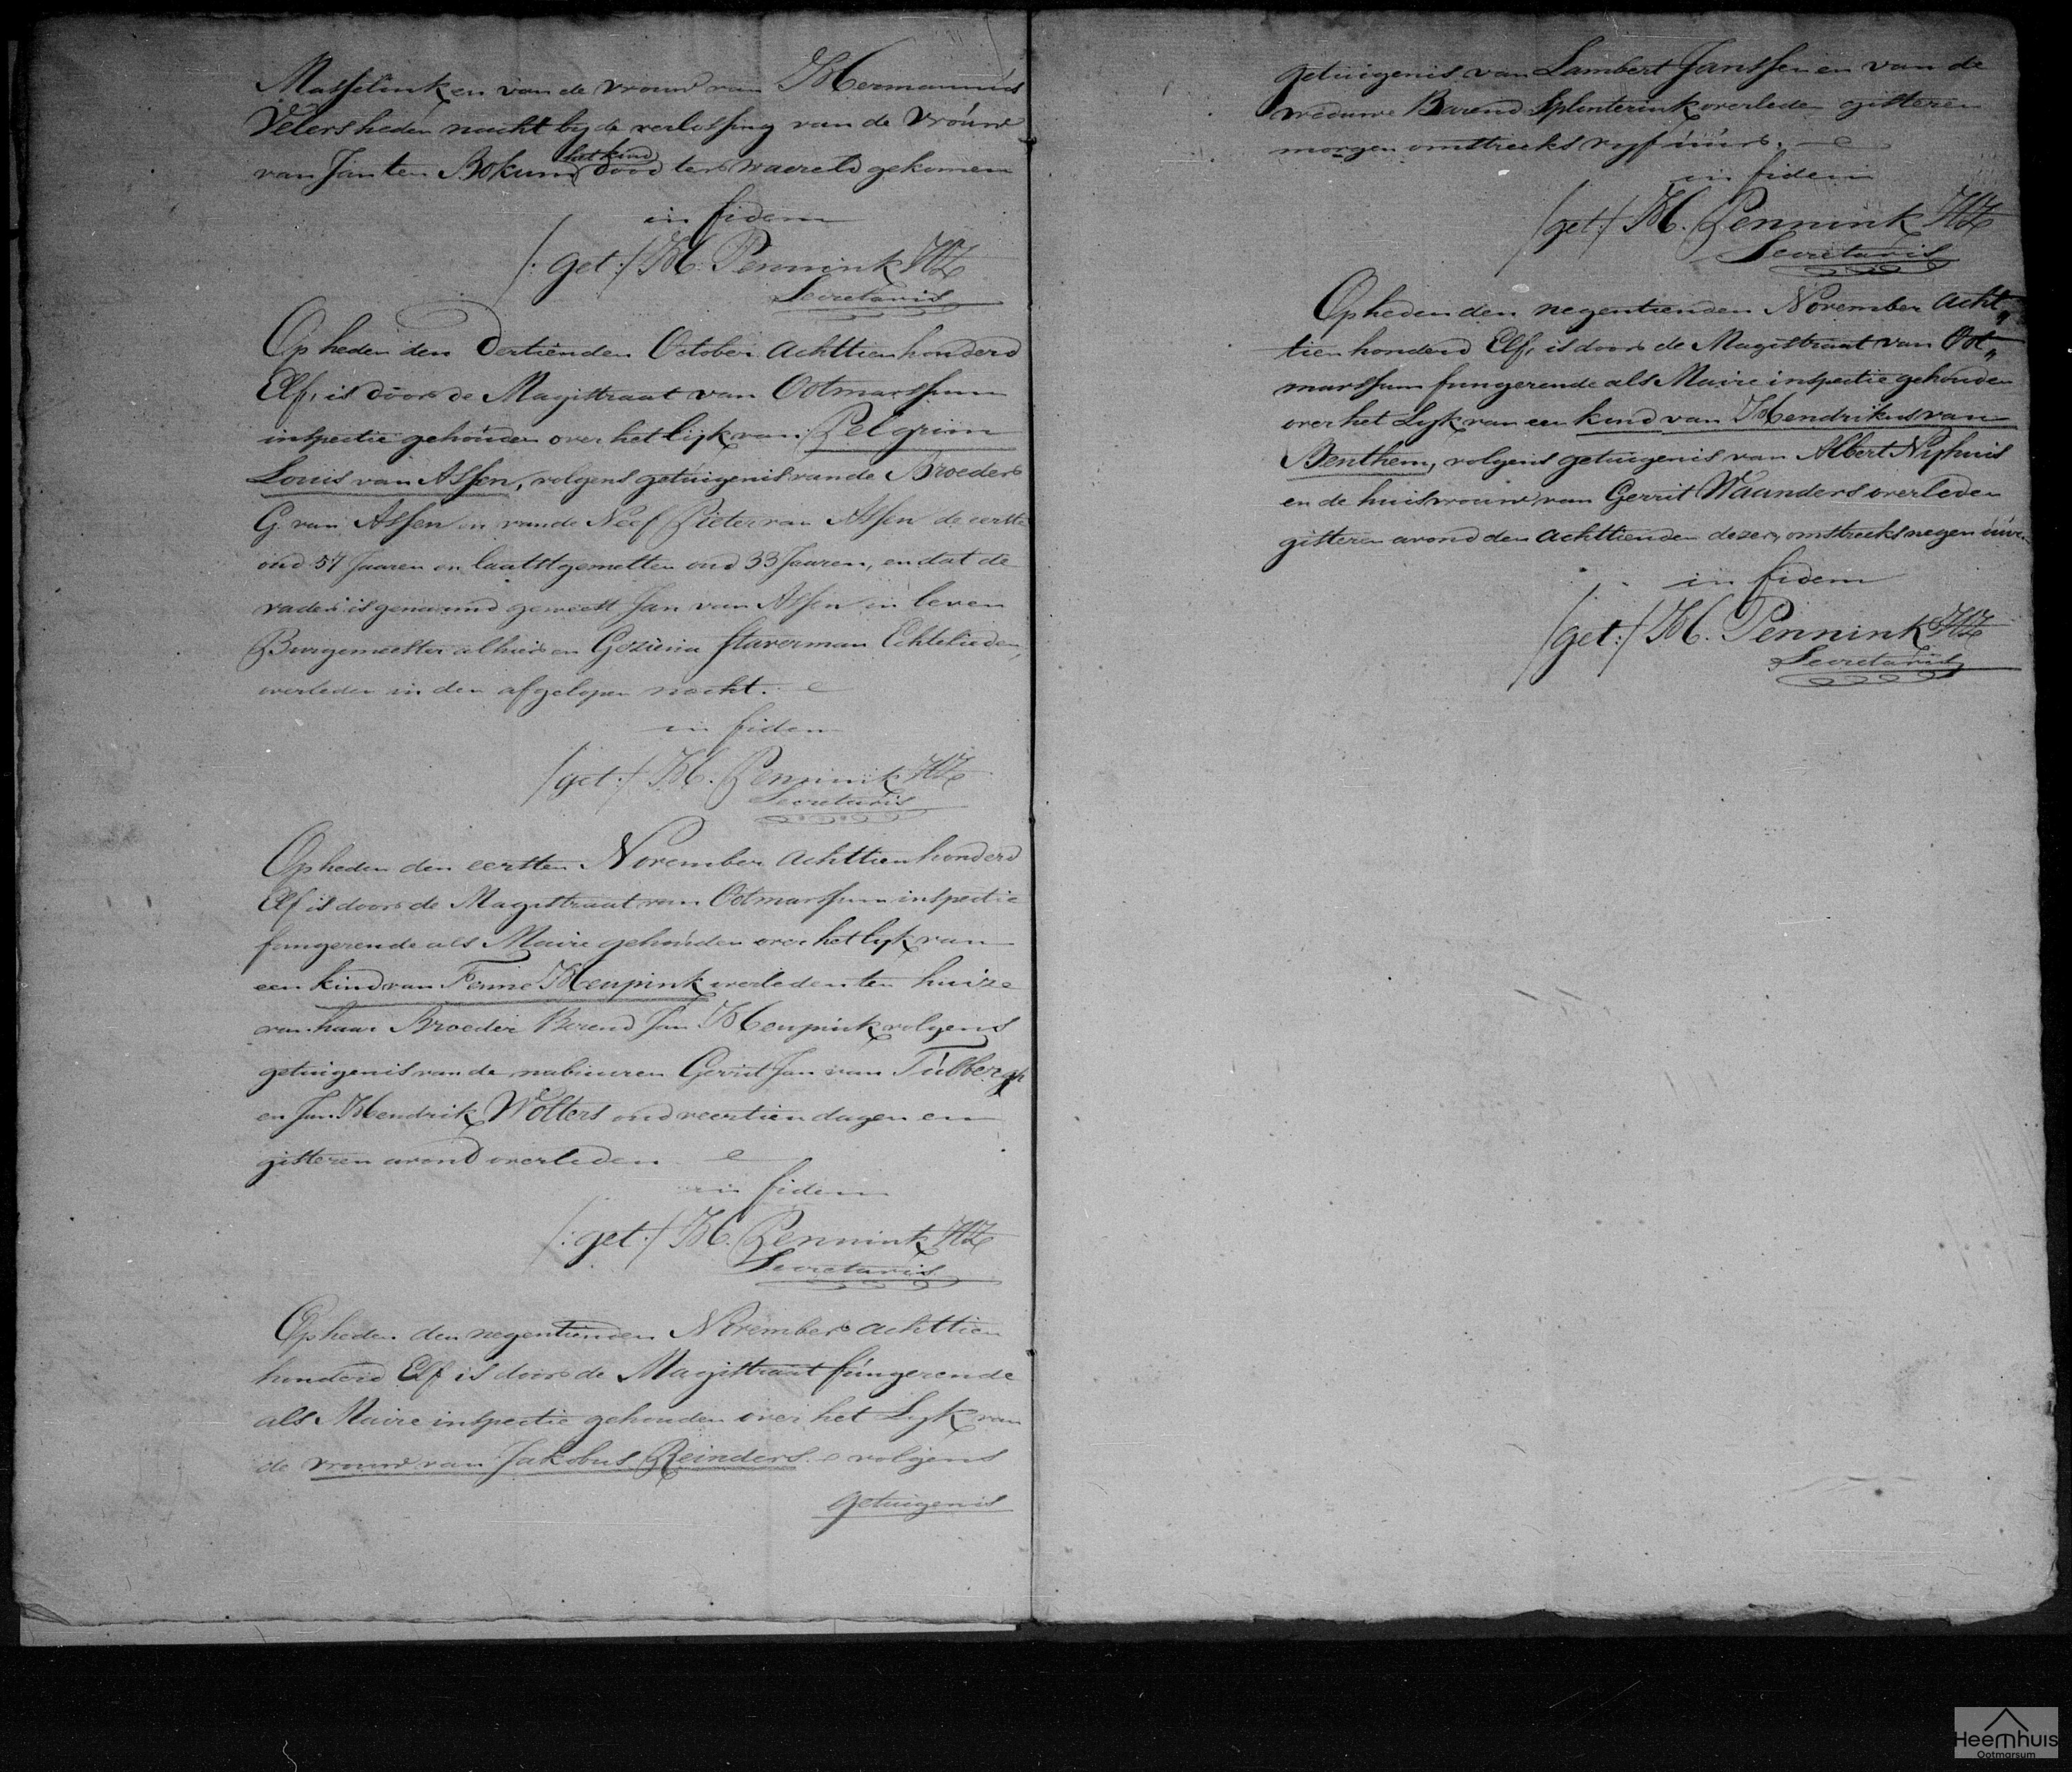 Masselink en van de vrouw van Hermannus
Velers heden nacht by de verlossing van de Vrouw
van Jan ten Bokum het kind dood ter waereld gekomen
in fidem
/: get :/ H. Pennink HZ
Secretaris
Op heden den dertienden October achttien honderd
Elf, is door de Magistraat van Ootmarssum
inspectie gehouden over het lijk van Pelgrim
Louis van Assen, volgens getuigenis van de Broeder
G. van Assen en van de Neef Pieter van Assen de eerste
oud 57 Jaaren en laatstgemelten oud 33 Jaaren, en dat de
vader is genaamd geweest Jan van Assen in leven
Burgemeester alhier en Gezina Staverman Echtelieden,
overleden in den afgelopen nacht.
in fidem
/: get :/ H. Pennink HZ
Secretaris
Op heden den eersten November achttien honderd
Elf is door de Magistraat van Ootmarssum inspectie
fungerende als Maire gehouden over het lyk van
een kind van Fenne Heupink overleden ten huize
van haar Broeder Berend Jan Heupink volgens
getuigenis van de nabuuren Gerrit Jan van Tubbergh
en Jan Hendrik Wolters oud veertien dagen en
gisteren avond overleden
in fidem
/: get :/ H. Pennink HZ
Secretaris
Op heden den negentienden November achttien
honderd Elf is door de Magistraat fungerende
als Maire inspectie gehouden over het Lyk van
de vrouw van Jakobus Reinders volgens
getuigenis
getuigenis van Lambert Janssen en van de
weduwe Barend Splenterink overleden gisteren
morgen omstreeks vyf uur.
in fidem
/: get :/ H. Pennink HZ
Secretaris
Op heden den negentienden November acht„
tien honderd Elf, is door de Magistraat van Oot„
marssum fungerende als Maire inspectie gehouden
over het Lyk van een kind van Hendrikus van
Benthem, volgens getuigenis van Albert Nyhuis
en de huisvrouw van Gerrit Waanders overleden
gisteren avond den achttienden dezer, omstreeks negen uuren
in fidem
/: get :/ H. Pennink HZ
Secretaris
Heemhuis
Ootmarsum